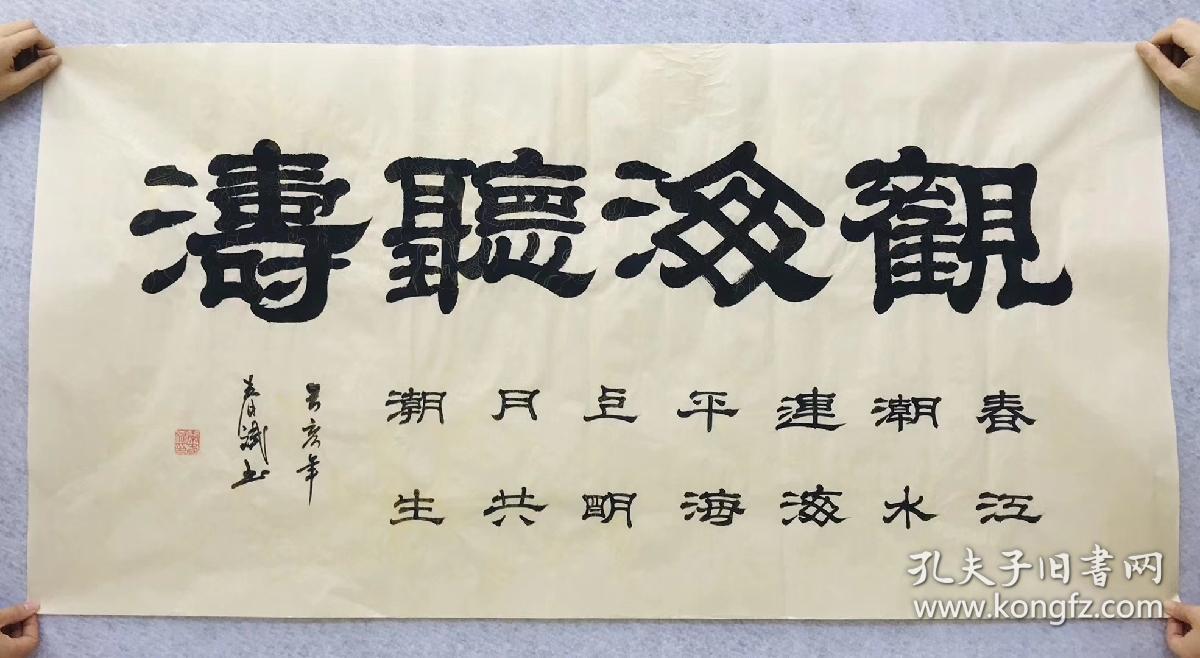 觀海聽濤
春江
潮水
連海
平海
上明
月共
潮生
己亥年
春斌书
孔夫子旧書网
www.kongfz.com